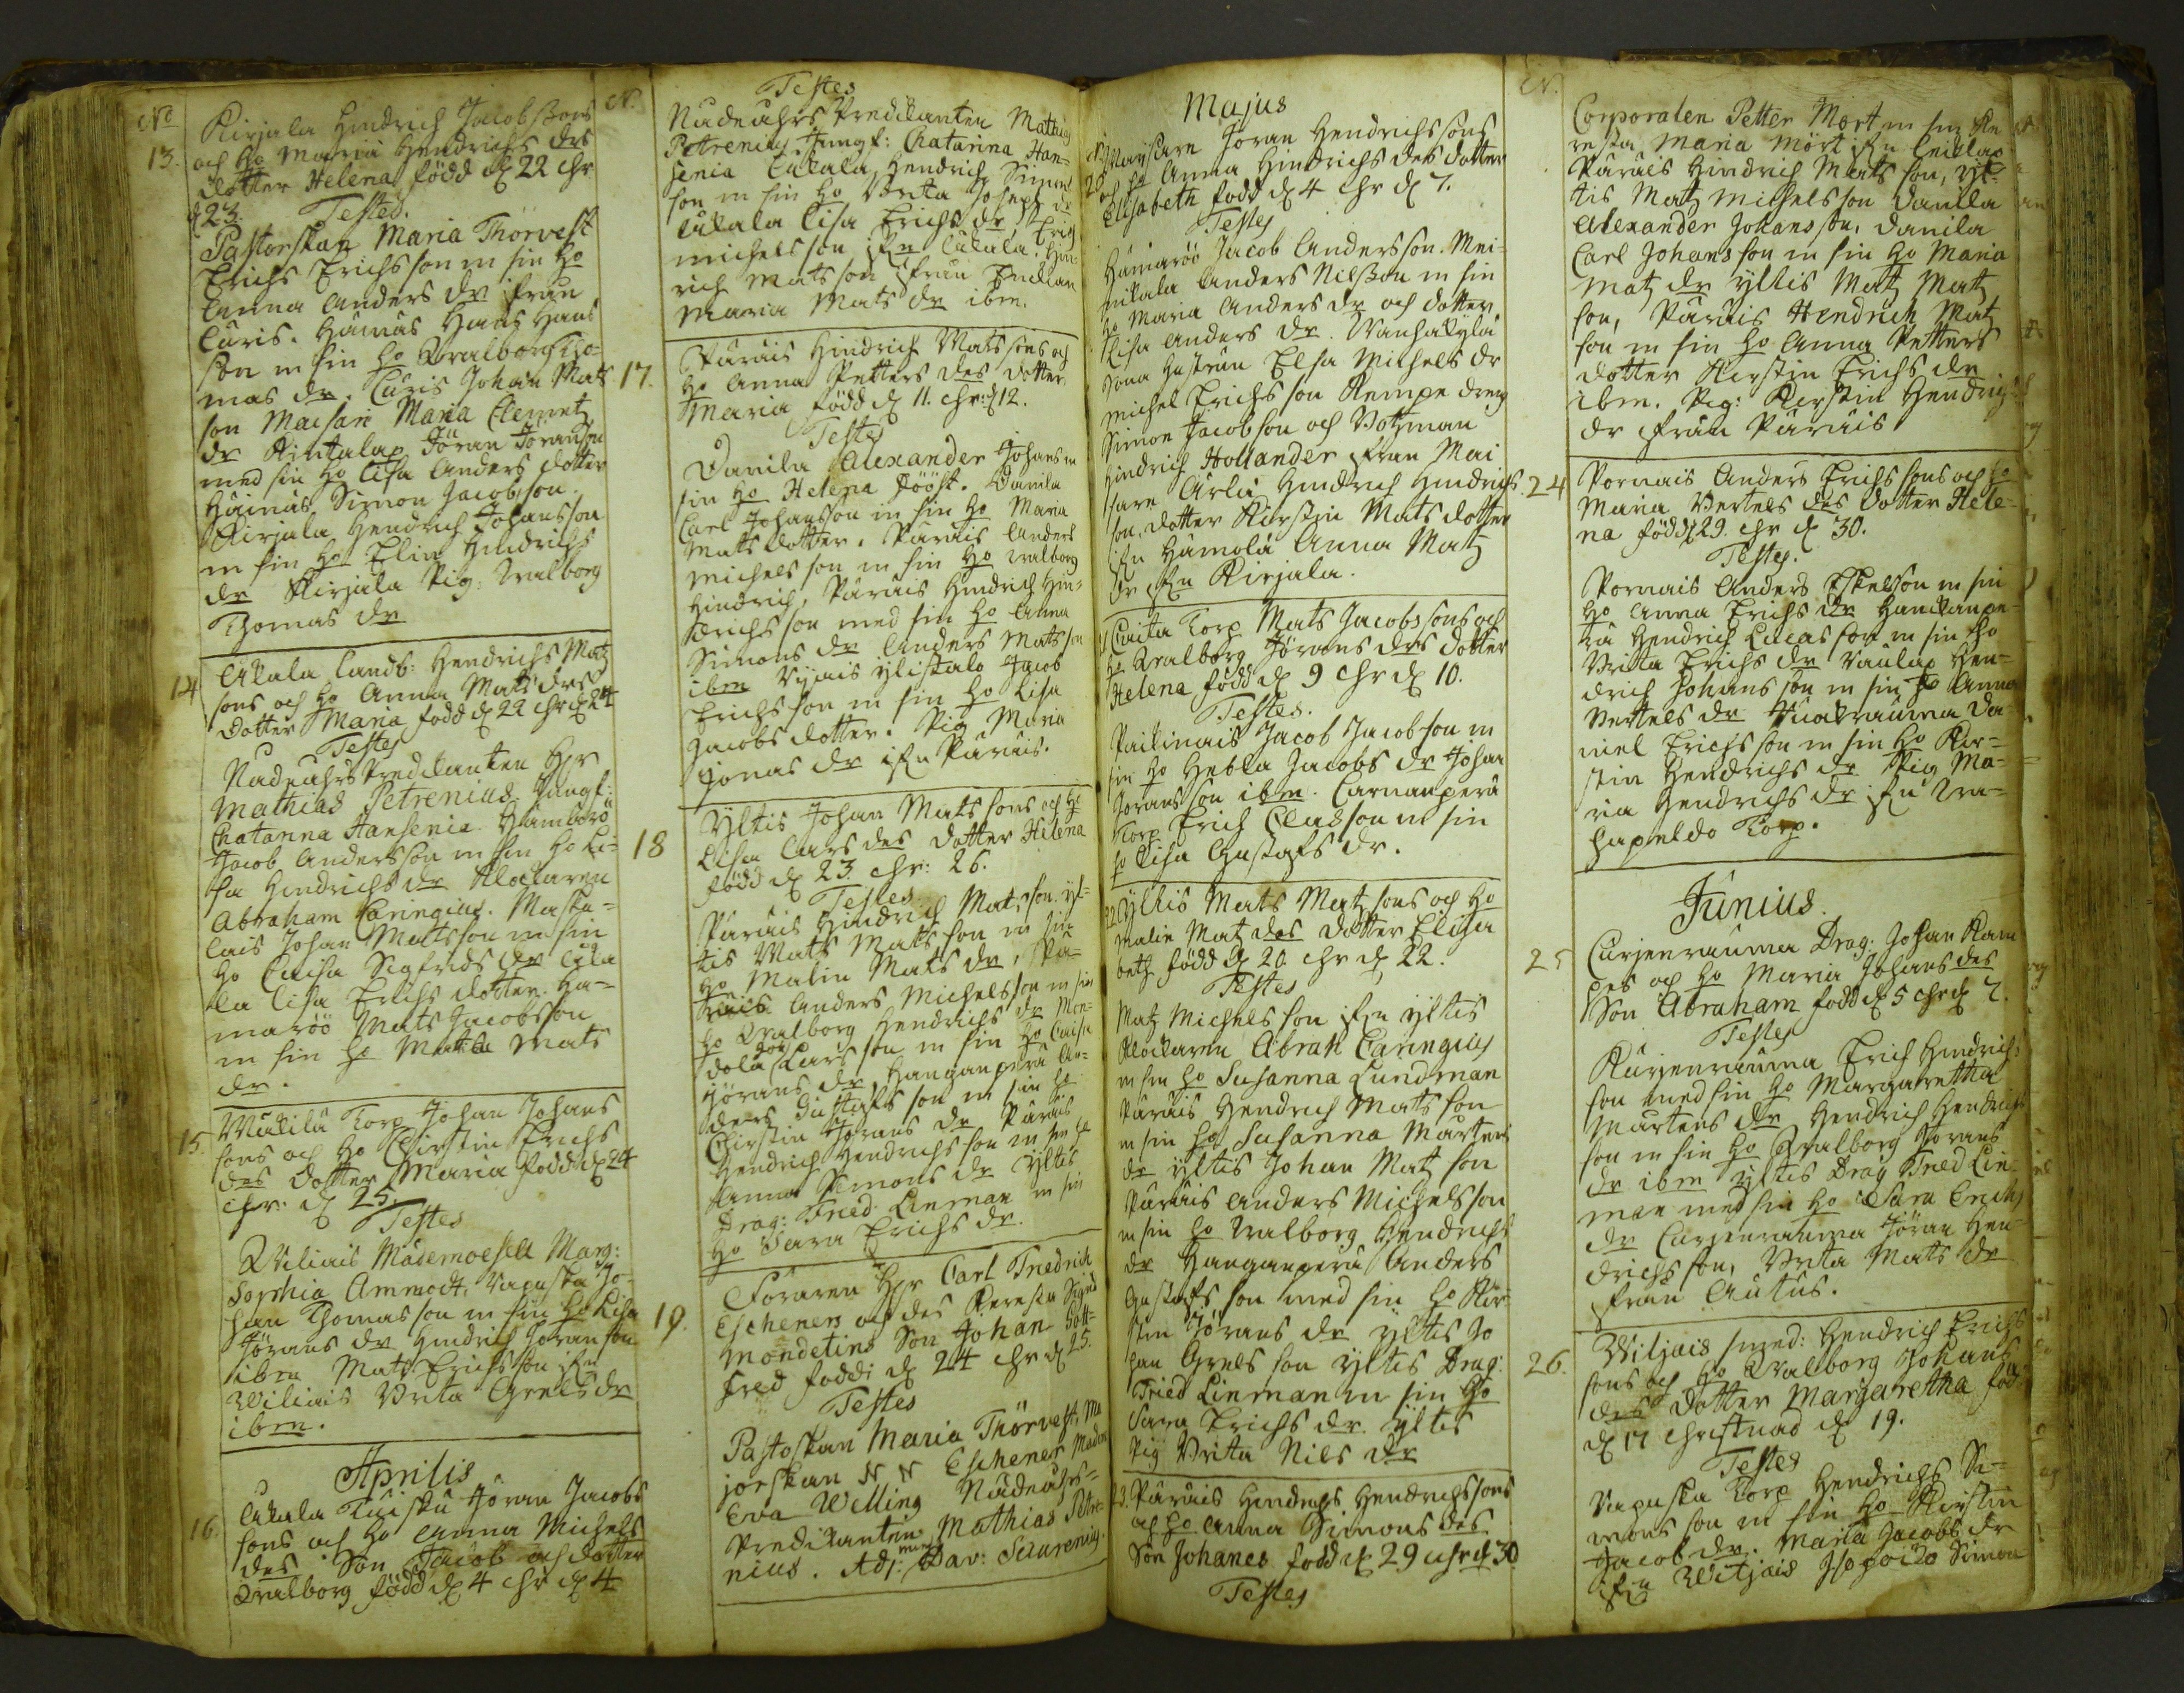 No
13.
Kirjala Hindrich Jacobssons
och Ho Maria Hendrichs drs
dotter Helena född d 22 chr
d 23. Testes.
Pastorskan Maria Thorvest
Erichs Erichsson m sin Ho
Anna Anders dr från
Curis. Hämäs Hans Hans
son m sin Ho Walborg Tho-
mas dr. Curis Johan Mats
son Maisari Maria Clemetz
dr Kintalax Jöran Jöransson
med sin Ho Lisa Anders dotter
Häinäs Simon Jacobsson.
Kirjala Hendrich Johansson
m sin Ho Elin Hindrichs
dr Kirjala Pig: Walborg
Thomas dr
14
Ukala Landb: Hendrichs Matz
sons och Ho Anna Mats drs
dotter Maria född d 22 chr d 24
Testes
Nådeåhrs Predikanten Hr
Mathias Petrenius Jungf:
Chatarina Hansenia Hämörö
Jacob Andersson m sin Ho Li-
sa Hindrichs dr Klockaren
Abraham Caringius. Maska-
lais Johan Matsson m sin
Ho Caisa Sigfrids dr Uka
la Lisa Erichs dotter. Ha-
maröö Mats Jacobsson
m sin Ho Matla Mats
dr.
15.
Mäkilä Torp Johan Johans
sons och Ho Christin Erichs
des dotter Maria född d 24
chr: d 25.
Testes
Wiliais Mademoisell Marg:
Sophia Ammodt, Vapaska Jo-
han Thomasson m sin Ho Lisa
Jörans dr Hindrich Jöransson
ibm Mats Erichsson ifrn
Wiliais Brita Grels dr
ibm.
Aprilis
16.
Ukala Tuiskü Jöran Jacobs
sons och Ho Anna Michels
des Son Jacob och dotter
Walborg född d 4 chr d 4
N.
Testes
Nådeåhrs Predikanten Mathias
Petrenius, Jungf: Chatarina Han-
senia Ukala Hendrich Simons
son m sin Ho Brita Joseps dr
Ukala Lisa Erichs dr, Erich
Michelsson ifrn Ukala. Hin-
rich Matsson ifrån
Maria Mats dr ibm.
17.
Päräis Hindrich Matssons och
Ho Anna Petters des dotter
Maria född d 11. chr: d 12.
Testes
Danila Alexander Johans m
sin Ho Helena Höök. Danila
Carl Johansson m sin Ho Maria
Mats dotter. Päräis Anders
Michelsson m sin Ho Walborg
Hindrich, Päräis Hindrich Hin-
drichsson med sin Ho Anna
Simons dr Anders Matsson
ibm Ylistalo Jacob
Erichsson m sin Ho Lisa
Jacobs dotter. Pig Maria
Jonas dr ifrn Päräis.
18
Yltis Johan Matssons och Ho
Lisa Lars des dotter Helena
född d 23. chr: 26.
Testes.
Päräis Hindrich Matsson. Yl-
tis Mats Matsson m sin
Ho Malin Mats dr, Pä-
räis Anders Michelsson m sin
Ho Walborg Hendrichs dr Mon-
dola Larsson m sin Ho Caisa
Jörans dr, Hanganperä An-
ders Gustafsson m sin Ho
Christin Jörans dr Päräis
Hendrich Hendrichsson m sin Ho
Anna Simons dr Yltis
Drag: Fried Linman m sin
Ho Sara Erichs dr.
19.
Foraren Hr Carl Friedrich
Escheners och des Kiersta Sigrid
Mondetins Son Johan Gott-
fred föddi d 24 chr d 25.
Testes
Pastoskan Maria Thörvest, Ma
jorskan N N Eschener Madm
Eva Welling Nådeåhrs-
Predikanten Mathias Petre-
nius. Adj: Dav:
Majus
20
Mayssare Jöran Hendrichssons
och Ho Anna Hindrichs des dotter
Elisabeth född d 4 chr d 7.
Testes
Hämaröö Jacob Andersson. Mei-
Anders Nilsson m sin
Ho Maria Anders dr och dotter
Lisa Anders dr. Wanhakylä
hustrun Elsa Michels dr
Michel Erichsson Kempe dreng
Simon Jacobsson och Botzman
Hindrich Hollander ifrån Mai
Hindrich Hindrichs
son, dotter Kirstin Mats dotter
ifrn Hämölä Anna Matz
dr ifrn Kirjala.
Torp Mats Jacobssons och
Ho Walborg Jörans des dotter
Helena född d 9 chr d 10.
Testes.
Paikinais Jacob Jacobsson m
sin Ho Hebla Jacobs dr Johan
Jöransson ibm. Carnanperä
Torp Erich Cladsson m sin
Ho Lisa Gustafs dr.
22.
Yltis Mats Matzsons och Ho
Malin Matz des dotter Elisa
beth född d 20 chr d 22.
Testes
Matz Michelsson ifrn Yltis
Klockaren Abrah Caringius
m sin Ho Susanna Lundman
Päräis Hendrich Matsson
m sin Ho Susanna Märtens
dr Yltis Johan Matzson
Päräis Anders Michelsson
m sin Ho Walborg Hendrichs
dr Hanganperä Anders
Gustafsson med sin Ho Kir-
stin Jörans dr Yltis Jo
han Grelsson Yltis Drag:
Fried Linman m sin Ho
Sara Erichs dr. Yltis
Pig Brita Nils dr
23.
Päräis Hendrichs Hendrichssons
och Ho Anna Simons des
Son Johanes född d 29 chr d 30
Testes
N.
Corporalen Petter Mört m sin Kie
resta Maria Mört ifrn
Päräis Hindrich Matsson, Yl-
tis Matz Michelsson Danila
Alexander Johansson, Danila
Carl Johansson m sin Ho Maria
Matz dr Yltis Matz Matz
son, Päräis Hendrich Matz
son m sin Ho Anna Petters
dotter Kirstin Erichs dr
ibm. Pig: Kirstin Hendrichs
dr ifrån Päräis
24
Pornais Anders Erichssons och Ho
Maria Bertels des dotter Hele-
na född 29. chr d 30.
Testes.
Pornais Anders Eskelsson m sin
Ho Anna Erichs dr Hankanpe-
rä Hendrich Lucasson m sin Ho
Brita Erichs dr Hen-
drich Johansson m sin Ho Anna
Bertels dr Da-
niel Erichsson m sin Ho Kir-
stin Hendrichs dr Pig Ma-
ria Hendrichs dr ifrn Wa-
Torp.
Junius.
25
Curjenrauma Drag: Johan Kam
pes och Ho Maria Johans des
Son Abraham född d 5 chr d 7.
Testes
Kurjenrauma Erich Hindrichs
son med sin Ho Margaretha
Märtens dr Hendrich Hendrichs
son m sin Ho Walborg Jörans
dr ibm Yltis Drag Fried Lin-
man med sin Ho Sara Erichs
dr Curjenrauma Jöran Hen-
drichsson, Brita Mats dr
från Autus.
26.
Wiljais smed: Hendrich Erichs
sons och Ho Walborg Johans
des dotter Margaretha född
d 17 christnad d 19.
Testes
Vapaska Torp Hendrichs Si-
monsson m sin Ho Kirstin
Jacob dr. Maria Jacobs dr
ifrn Wiljais Isopoito Simon